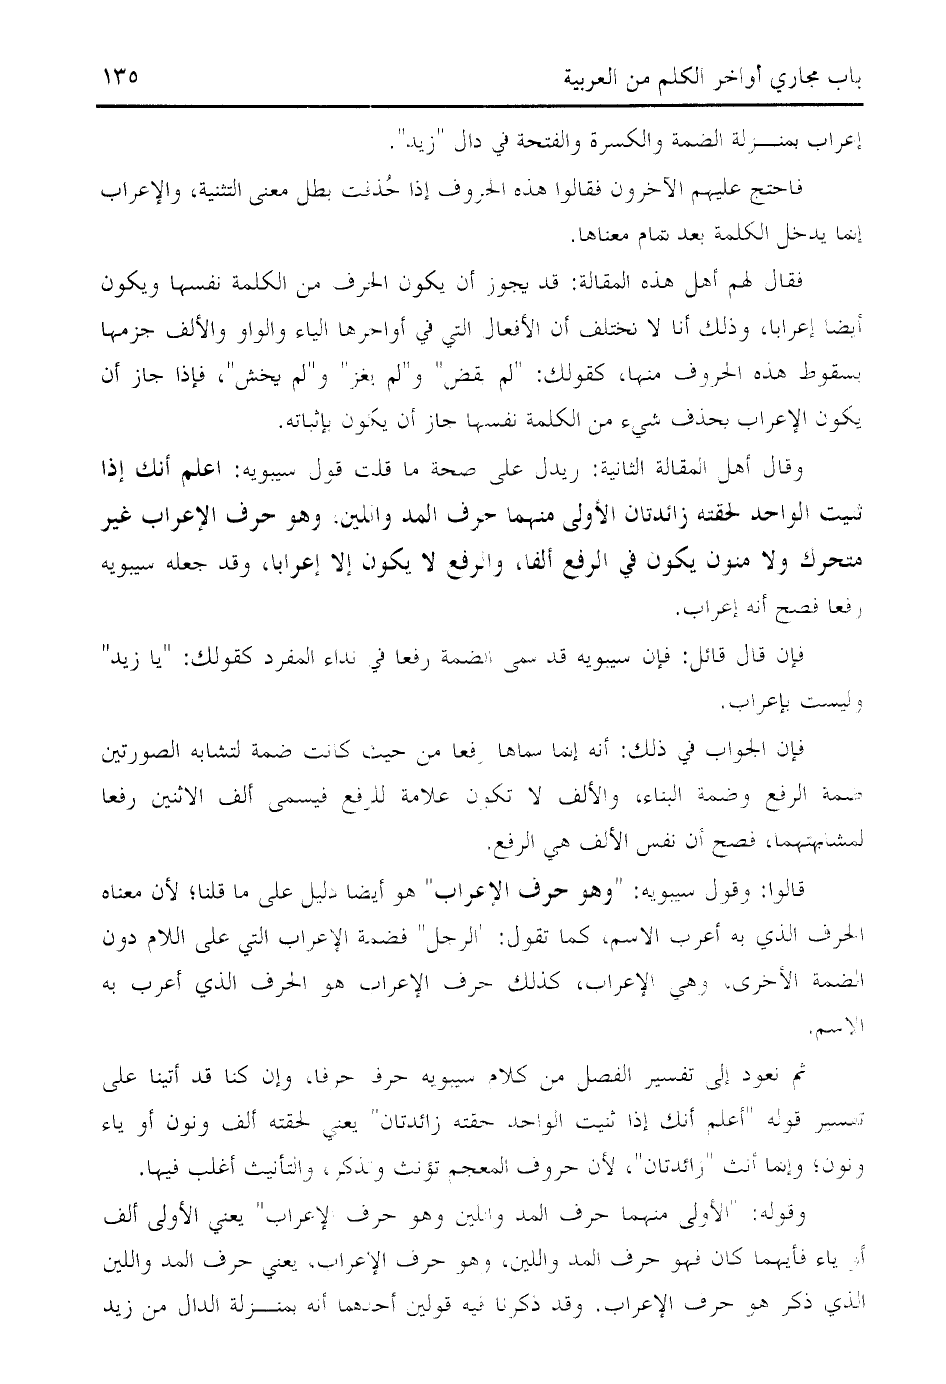 باب مجاري أواخر الكلم من العربية ١٣٥
إعراب بمنـــزلة الضمة والكسرة والفتحة في دال "زيد".
فاحتج عليهم الآخرون فقالوا هذه الحروف إذا حُذفت بطل معنى التثنية، والإعراب
إنما يدخل الكلمة بعد تمام معناها.
فقال لهم أهل هذه المقالة: قد يجوز أن يكون الحرف من الكلمة نفسها ويكون
أيضا إعرابا، وذلك أنا لا نختلف أن الأفعال التي في أواخرها الياء والواو والألف جزمها
بسقوط هذه الحروف منها، كقولك: "لم يقض" و"لم يغز" و"لم يخش"، فإذا جاز أن
يكون الإعراب بحذف شيء من الكلمة نفسها جاز أن يكون بإثباته.
وقال أهل المقالة الثانية: ويدل على صحة ما قلت قول سيبويه: اعلم أنك إذا
ثنيت الواحد لحقته زائدتان الأولى منهما حرف المد واللين. وهو حرف الإعراب غير
متحرك ولا منون يكون في الرفع ألفا، والرفع لا يكون إلا إعرابا، وقد جعله سيبويه
رفعا فصح أنه إعراب.
فإن قال قائل: فإن سيبويه قد سمى الضمة رفعا في نداء المفرد كقولك: "يا زيد"
وليست بإعراب.
فإن الجواب في ذلك: أنه إنما سماها رفعا من حيث كانت ضمة لتشابه الصورتين
ضمة الرفع وضمة البناء، والألف لا تكون علامة للرفع فيسمى ألف الاثنين رفعا
لمشابهتهما، فصح أن نفس الألف هي الرفع.
قالوا: وقول سيبويه: "وهو حرف الإعراب" هو أيضا دليل على ما قلنا؛ لأن معناه
الحرف الذي به أعرب الاسم، كما تقول: "الرجل" فضمة الإعراب التي على اللام دون
الضمة الأخرى. وهي الإعراب، كذلك حرف الإعراب هو الحرف الذي أعرب به
الاسم.
ثم نعود إلى تفسير الفصل من كلام سيبويه حرفا حرفا، وإن كنا قد أتينا على
تفسير قوله "أعلم أنك إذا ثنيت الواحد لحقته زائدتان" يعني لحقته ألف ونون أو ياء
ونون؛ وإنما أنث "زائدتان"، لأن حروف المعجم تؤنث وتذكر، والتأنيث أغلب فيها.
وقوله: "الأولى منهما حرف المد واللين وهو حرف الإعراب" يعني الأولى ألف
أو ياء فأيهما كان فهو حرف المد واللين، وهو حرف الإعراب. يعني حرف المد واللين
الذي ذكر هو حرف الإعراب. وقد ذكرنا فيه قولين أحدهما أنه بمنـــزلة الدال من زيد